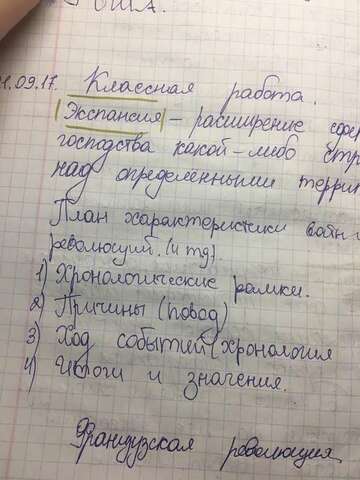 США.
1.09.17. Классная работа.
Экспансия – расширение сфер
господства какой-либо стр
над определёнными террит
План характеристики войн и
революций. (и тд).
1) Хронологические рамки.
2) Причины (повод)
3) Ход событий (хронология
4) Итоги и значения.
Французская революция